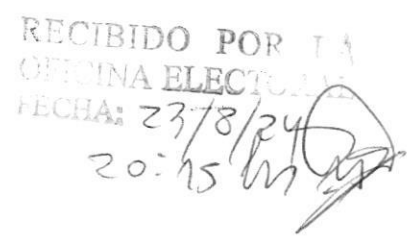 RECIBIDO POR LA
OFICINA ELECTORAL
FECHA: 23/8/24